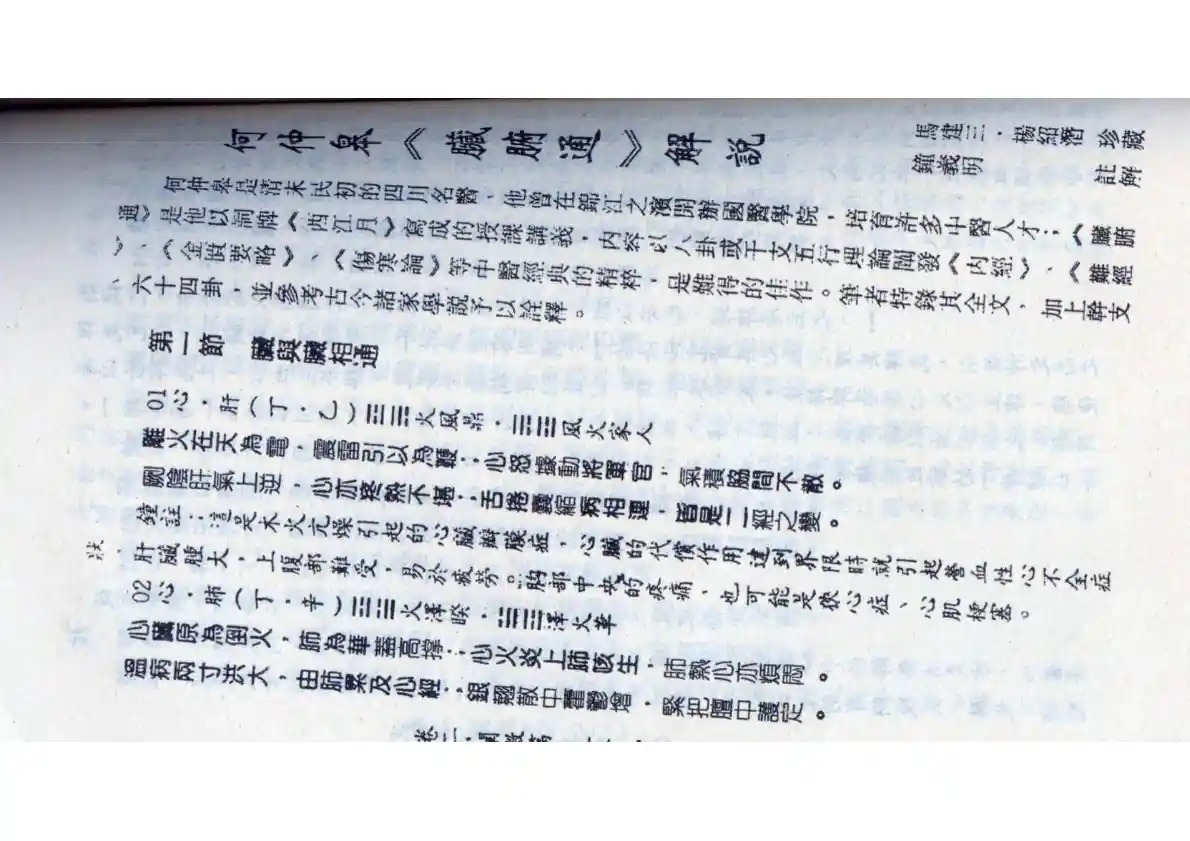 何仲皋《臟腑通》解説
馬建三．楊紹潛 珍藏
鐘義明 註解
何仲皋是清末民初的四川名醫，他曾在錦江之濱開辦國醫學院，培育許多中醫人才；《臟腑
通》是他以詞牌《西江月》寫成的授課講義，内容以八卦或干支五行理論闡發《内經》、《難經
》、《金匱要略》、《傷寒論》等中醫經典的精粹，是難得的佳作。筆者特錄其全文，加上幹支
、六十四卦，並參考古今諸家學説予以詮釋。
第一節　臟與臟相通
01心．肝（丁．乙）☲☴火風鼎．☴☲風火家人
離火在天為電，震雷引以為鞭；心怒據動將軍官，氣積脇間不散。
厥陰肝氣上逆　心亦疼熱不堪；舌捲囊縮兩相連　皆是二經之變。
鐘註：這是木火亢燥引起的心臟瓣膜症，心臟的代償作用達到界限時就引起鬱血性心不全症
狀
肝臟腫大，上腹部難受，易於疲勞。胸部中央的疼痛，也可能是狹心症、心肌梗塞。
02心．肺（丁．辛）☲☱火澤睽．☱☲澤火革
心臟原為倒火，肺為華蓋高撐；心火炎上肺該生，肺熱心亦煩悶。
溫病兩寸洪大，由肺累及心經；銀翹散中藿鬱增，緊把膻中護定。